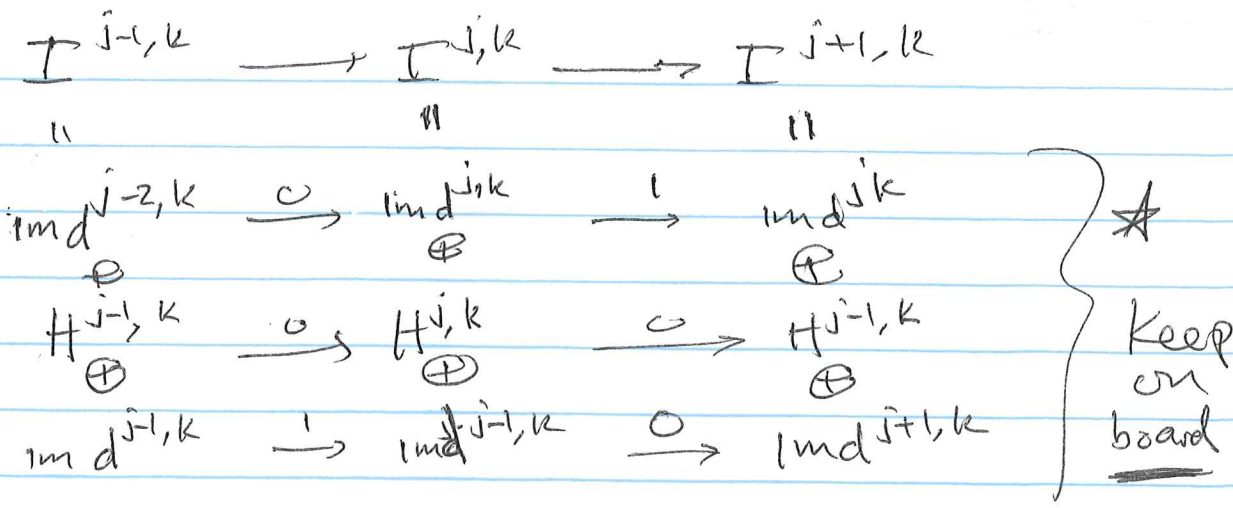 I^{j-1,k} ⟶ I^{j,k} ⟶ I^{j+1,k}
|| || ||
im d^{j-2,k} \xrightarrow{0} im d^{j,k} \xrightarrow{1} im d^{jk}
⊕ ⊕ ⊕
H^{j-1,k} \xrightarrow{0} H^{j,k} \xrightarrow{0} H^{j-1,k}
⊕ ⊕ ⊕
im d^{j-1,k} \xrightarrow{1} im d^{j-1,k} \xrightarrow{0} im d^{j+1,k}
} ☆
Keep
on
board